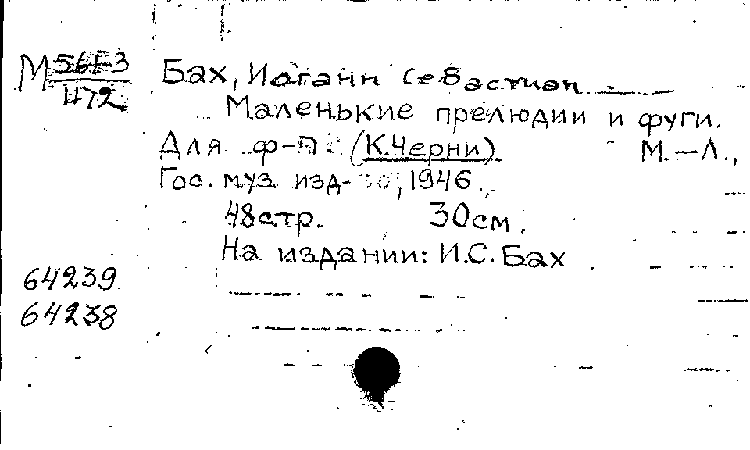 М Бах, Иоганн Себастиан
472 Маленькие прелюдии и фуги.
Для ф-п (К.Черни) М.-Л.,
Гос. муз. изд-во, 1946.
48стр. 30см.
На издании: И.С. Бах
64239
64238